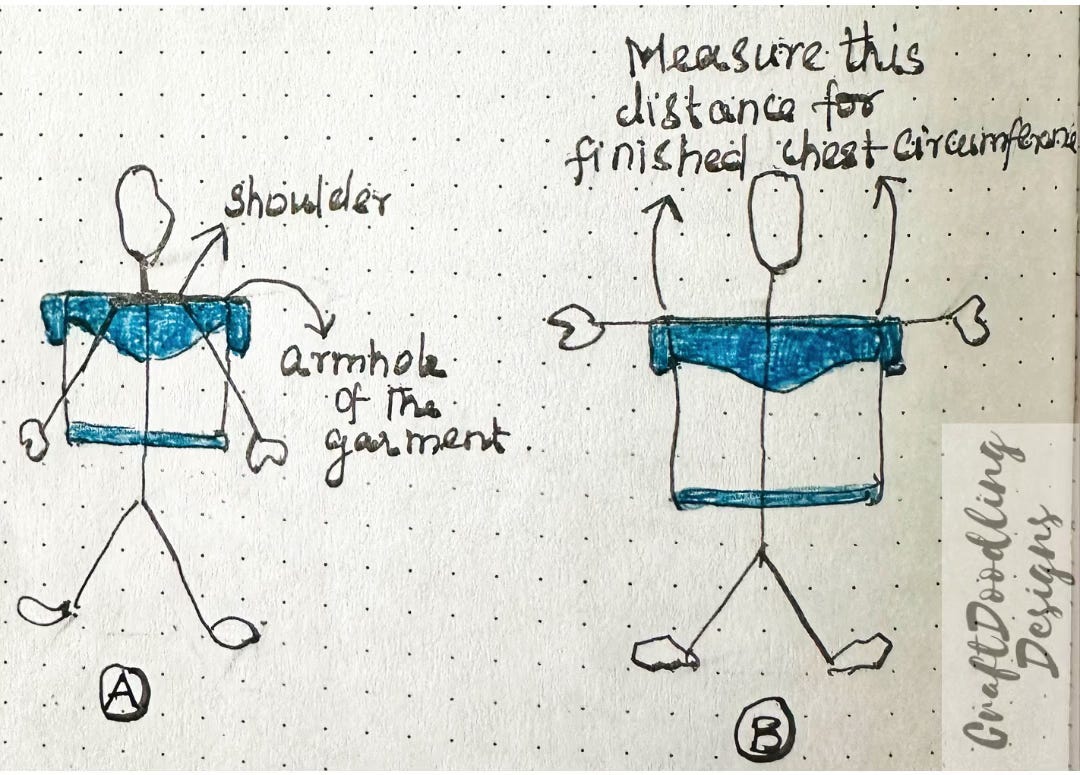 Measure this
distance for
finished chest circumference
shoulder
armhole
of the
garment.
A
B
CraftDoodling
Designs